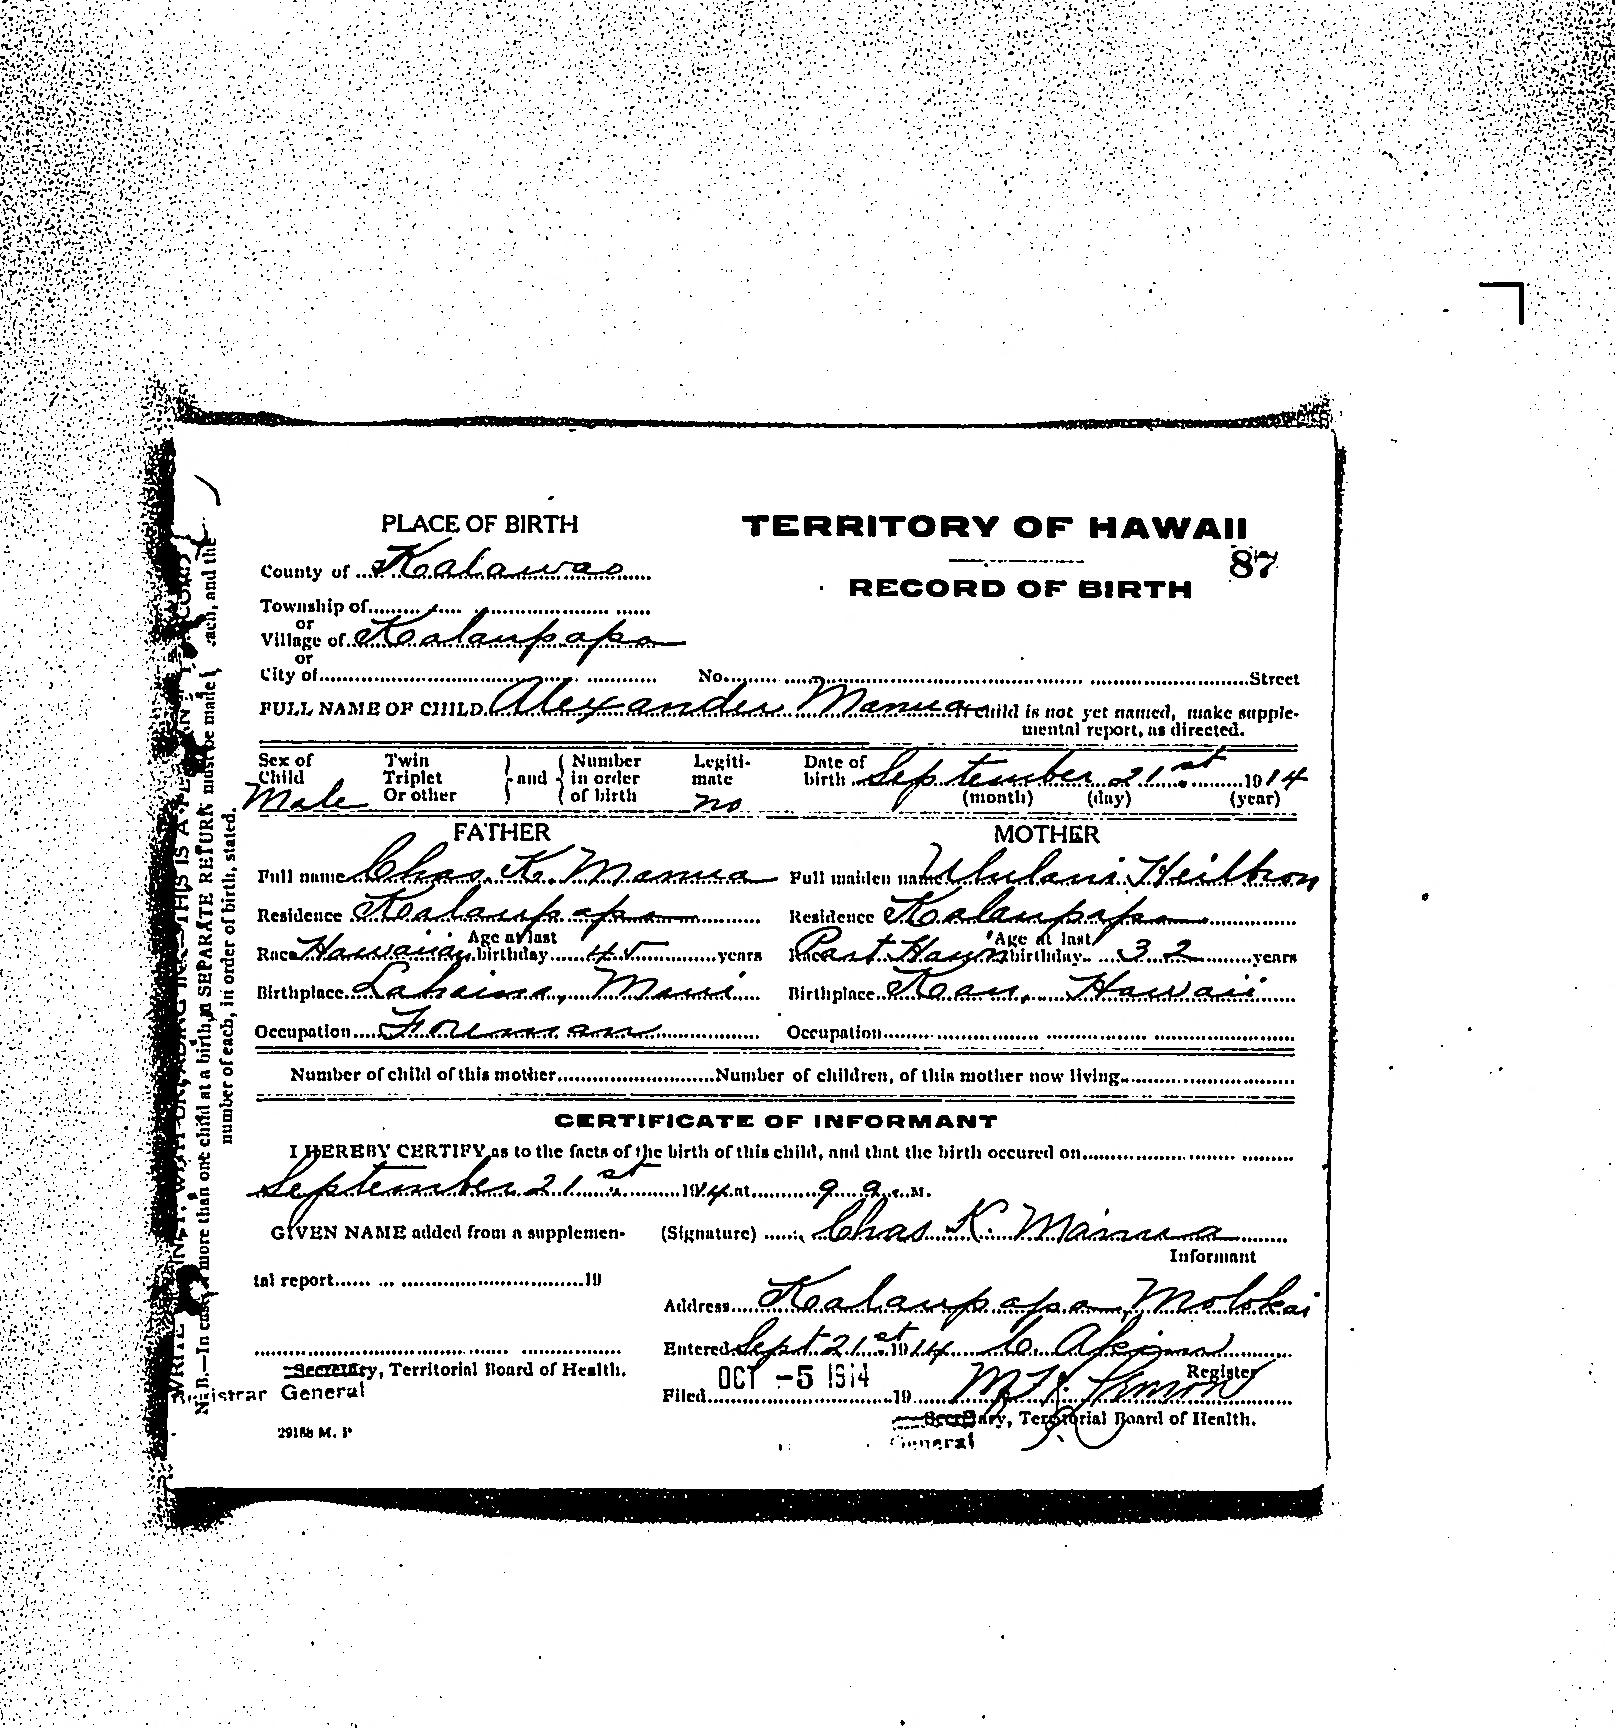 PLACE OF BIRTH
TERRITORY OF HAWAII
87
RECORD OF BIRTH
County of Kalawao
Township of
or
Village of Kalaupapa
or
City of No. Street
FULL NAME OF CHILD Alexander Manua If child is not yet named, make supple-
mental report, as directed.
Sex of Child Male
Twin Triplet Or other
and
Number in order of birth
Legiti-mate no
Date of birth September 21st 1914
(month) (day) (year)
FATHER
Full name Chas. K. Manua
Residence Kalaupapa
Race Hawaiian Age at last birthday 45 years
Birthplace Lahaina, Maui
Occupation Foreman
MOTHER
Full maiden name Ululani Heilbron
Residence Kalaupapa
Race Part Hawn Age at last birthday 32 years
Birthplace Kau, Hawaii
Occupation
Number of child of this mother Number of children, of this mother now living
CERTIFICATE OF INFORMANT
I HEREBY CERTIFY as to the facts of the birth of this child, and that the birth occured on
September 21st 1914 at 9 a. M.
GIVEN NAME added from a supplemen-
tal report 19
Secretary, Territorial Board of Health.
Registrar General
29188 M. P
(Signature) Chas K. Manua
Informant
Address Kalaupapa, Molokai
Entered Sept 21st 1914
Register
Filed OCT -5 1914 19
Secretary, Territorial Board of Health.
General
N. B.—In case more than one child at a birth, a SEPARATE RETURN must be made each, and the
number of each, in order of birth, stated.